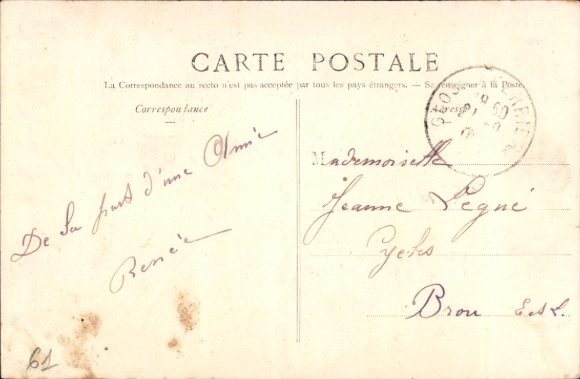 CARTE POSTALE
La Correspondance au recto n'est pas acceptée par tous les pays étrangers. — Se renseigner à la Poste.
Correspondance
Adresse
De la part d'une Amie
Renée
Mademoiselle
Jeanne Legné
Brou E et L.
61